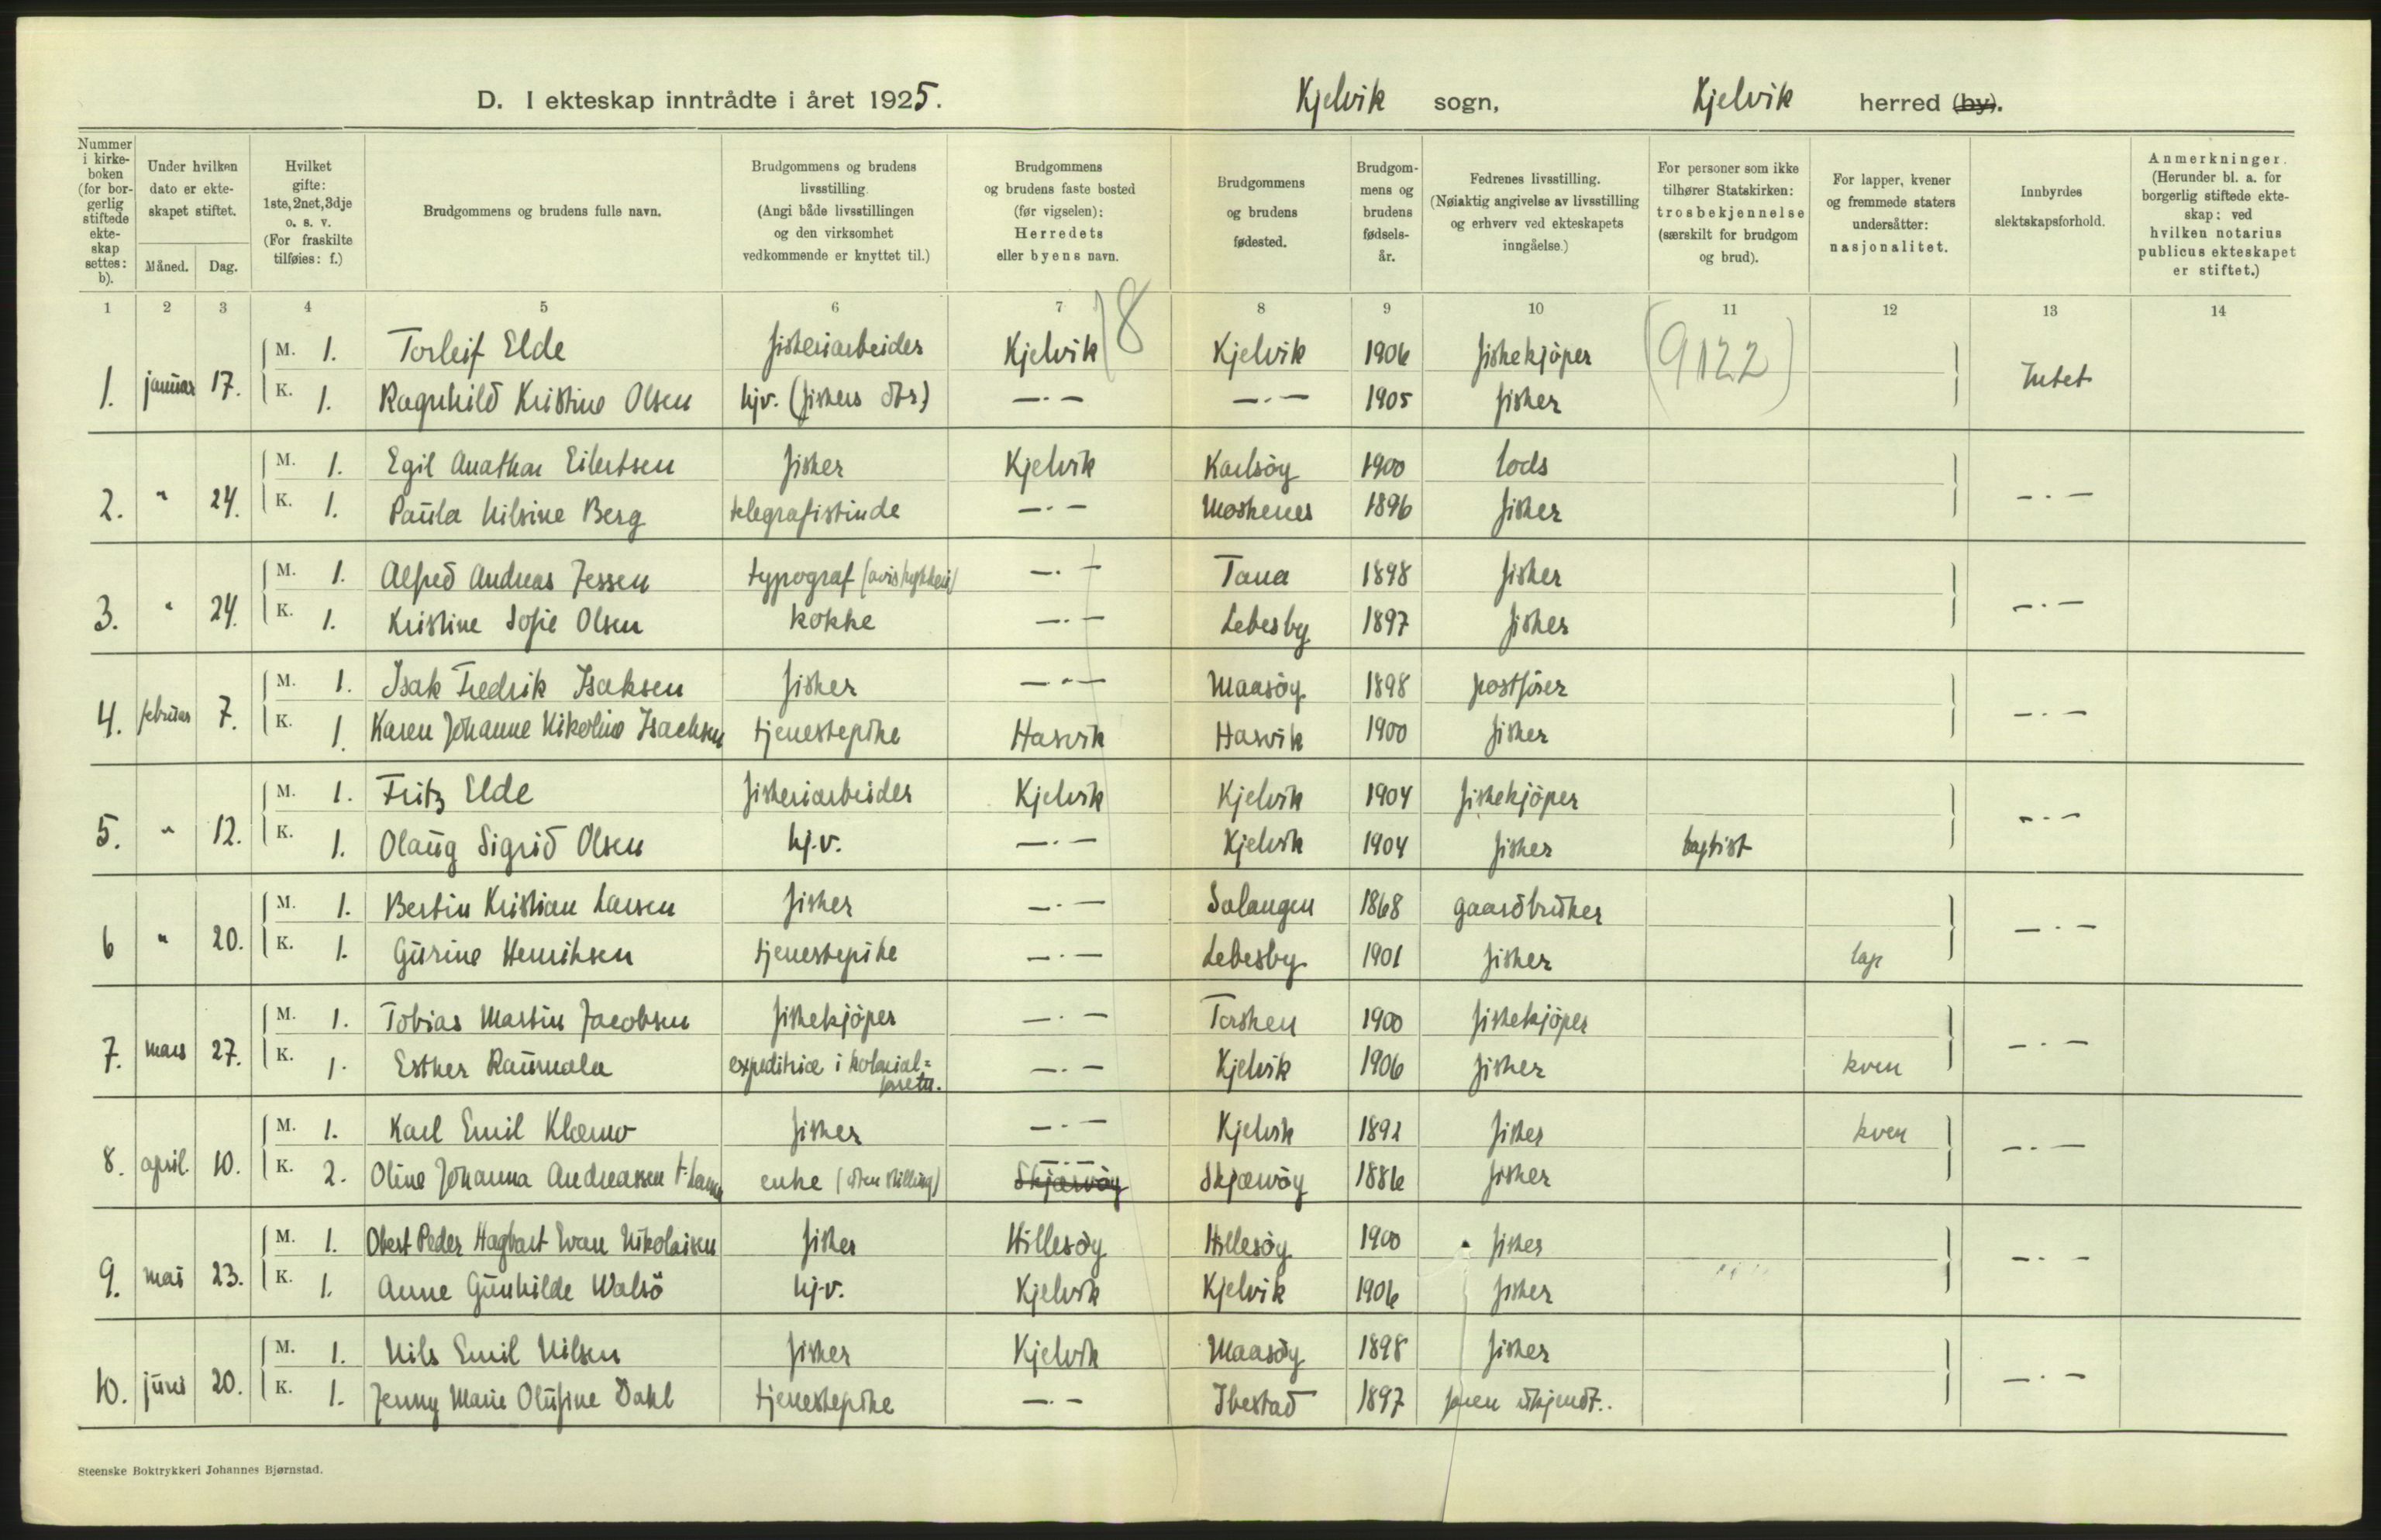 D. I ekteskap inntrådte i året 1925. Kjelvik sogn, Kjelvik herred (by).
Nummer i kirkeboken (for borgerlig stiftede ekteskap settes: b).
Under hvilken dato er ekteskapet stiftet.
Måned. Dag.
Hvilket gifte: 1ste, 2net, 3dje o. s. v. (For fraskilte tilføies: f.)
Brudgommens og brudens fulle navn.
Brudgommens og brudens livsstilling. (Angi både livsstillingen og den virksomhet vedkommende er knyttet til.)
Brudgommens og brudens faste bosted (før vigselen): Herredets eller byens navn.
Brudgommens og brudens fødested.
Brudgommens og brudens fødselsår.
Fedrenes livsstilling. (Nøiaktig angivelse av livsstilling og erhverv ved ekteskapets inngåelse.)
For personer som ikke tilhører Statskirken: trosbekjennelse (særskilt for brudgom og brud).
For lapper, kvener og fremmede staters undersåtter: nasjonalitet.
Innbyrdes slektskapsforhold.
Anmerkninger. (Herunder bl. a. for borgerlig stiftede ekteskap: ved hvilken notarius publicus ekteskapet er stiftet.)
1 2 3 4 5 6 7 8 9 10 11 12 13 14
8 (9122)
1. januar 17. M. 1. Torleif Elde fiskeriarbeider Kjelvik Kjelvik 1906 fiskekjöper Intet
K. 1. Ragnhild Kristine Olsen hjv. (fiskers dtr.) —·— —·— 1905 fisker
2. " 24. M. 1. Egil Anathon Eilertsen fisker Kjelvik Karlsöy 1900 lods —·—
K. 1. Paula Nilsine Berg telegrafistinde —·— Moskenes 1896 fisker
3. " 24. M. 1. Alfred Andreas Jessen typograf —·— Tana 1898 fisker —·—
K. 1. Kristine Sofie Olsen kokke —·— Lebesby 1897 fisker
4. februar 7. M. 1. Isak Fredrik Isaksen fisker —·— Maasöy 1898 postförer —·—
K. 1. Karen Johanne Nikoline Isachsen tjenestepike Hasvik Hasvik 1900 fisker
5. " 12. M. 1. Fritz Elde fiskeriarbeider Kjelvik Kjelvik 1904 fiskekjöper —·—
K. 1. Olaug Sigrid Olsen hj.v. —·— Kjelvik 1904 fisker baptist
6 " 20. M. 1. Bertin Kristian Larsen fisker —·— Salangen 1868 gaardbruker —·—
K. 1. Gurine Henriksen tjenestepike —·— Lebesby 1901 fisker lap
7. mars 27. M. 1. Tobias Martin Jacobsen fiskekjöper —·— Torsken 1900 fiskekjöper —·—
K. 1. Esther Raumala expeditrice i kolonial=
forretn. —·— Kjelvik 1906 fisker kven
8. april 10. M. 1. Karl Emil Klæmo fisker —·— Kjelvik 1892 fisker kven —·—
K. 2. Oline Johanna Andreassen f. Larsen enke (uten stilling) —·— Skjærvöy Skjærvöy 1886 fisker
9. mai 23. M. 1. Obert Peder Hagbart Evan Nikolaisen fisker Hillesöy Hillesöy 1900 fisker —·—
K. 1. Anne Gunhilde Walsö hj.v. Kjelvik Kjelvik 1906 fisker
10. juni 20. M. 1. Nils Emil Nilsen fisker Kjelvik Maasöy 1898 fisker —·—
K. 1. Jenny Marie Olufine Dahl tjenestepike —·— Ibestad 1897 faren ukjendt.
Steenske Boktrykkeri Johannes Bjørnstad.